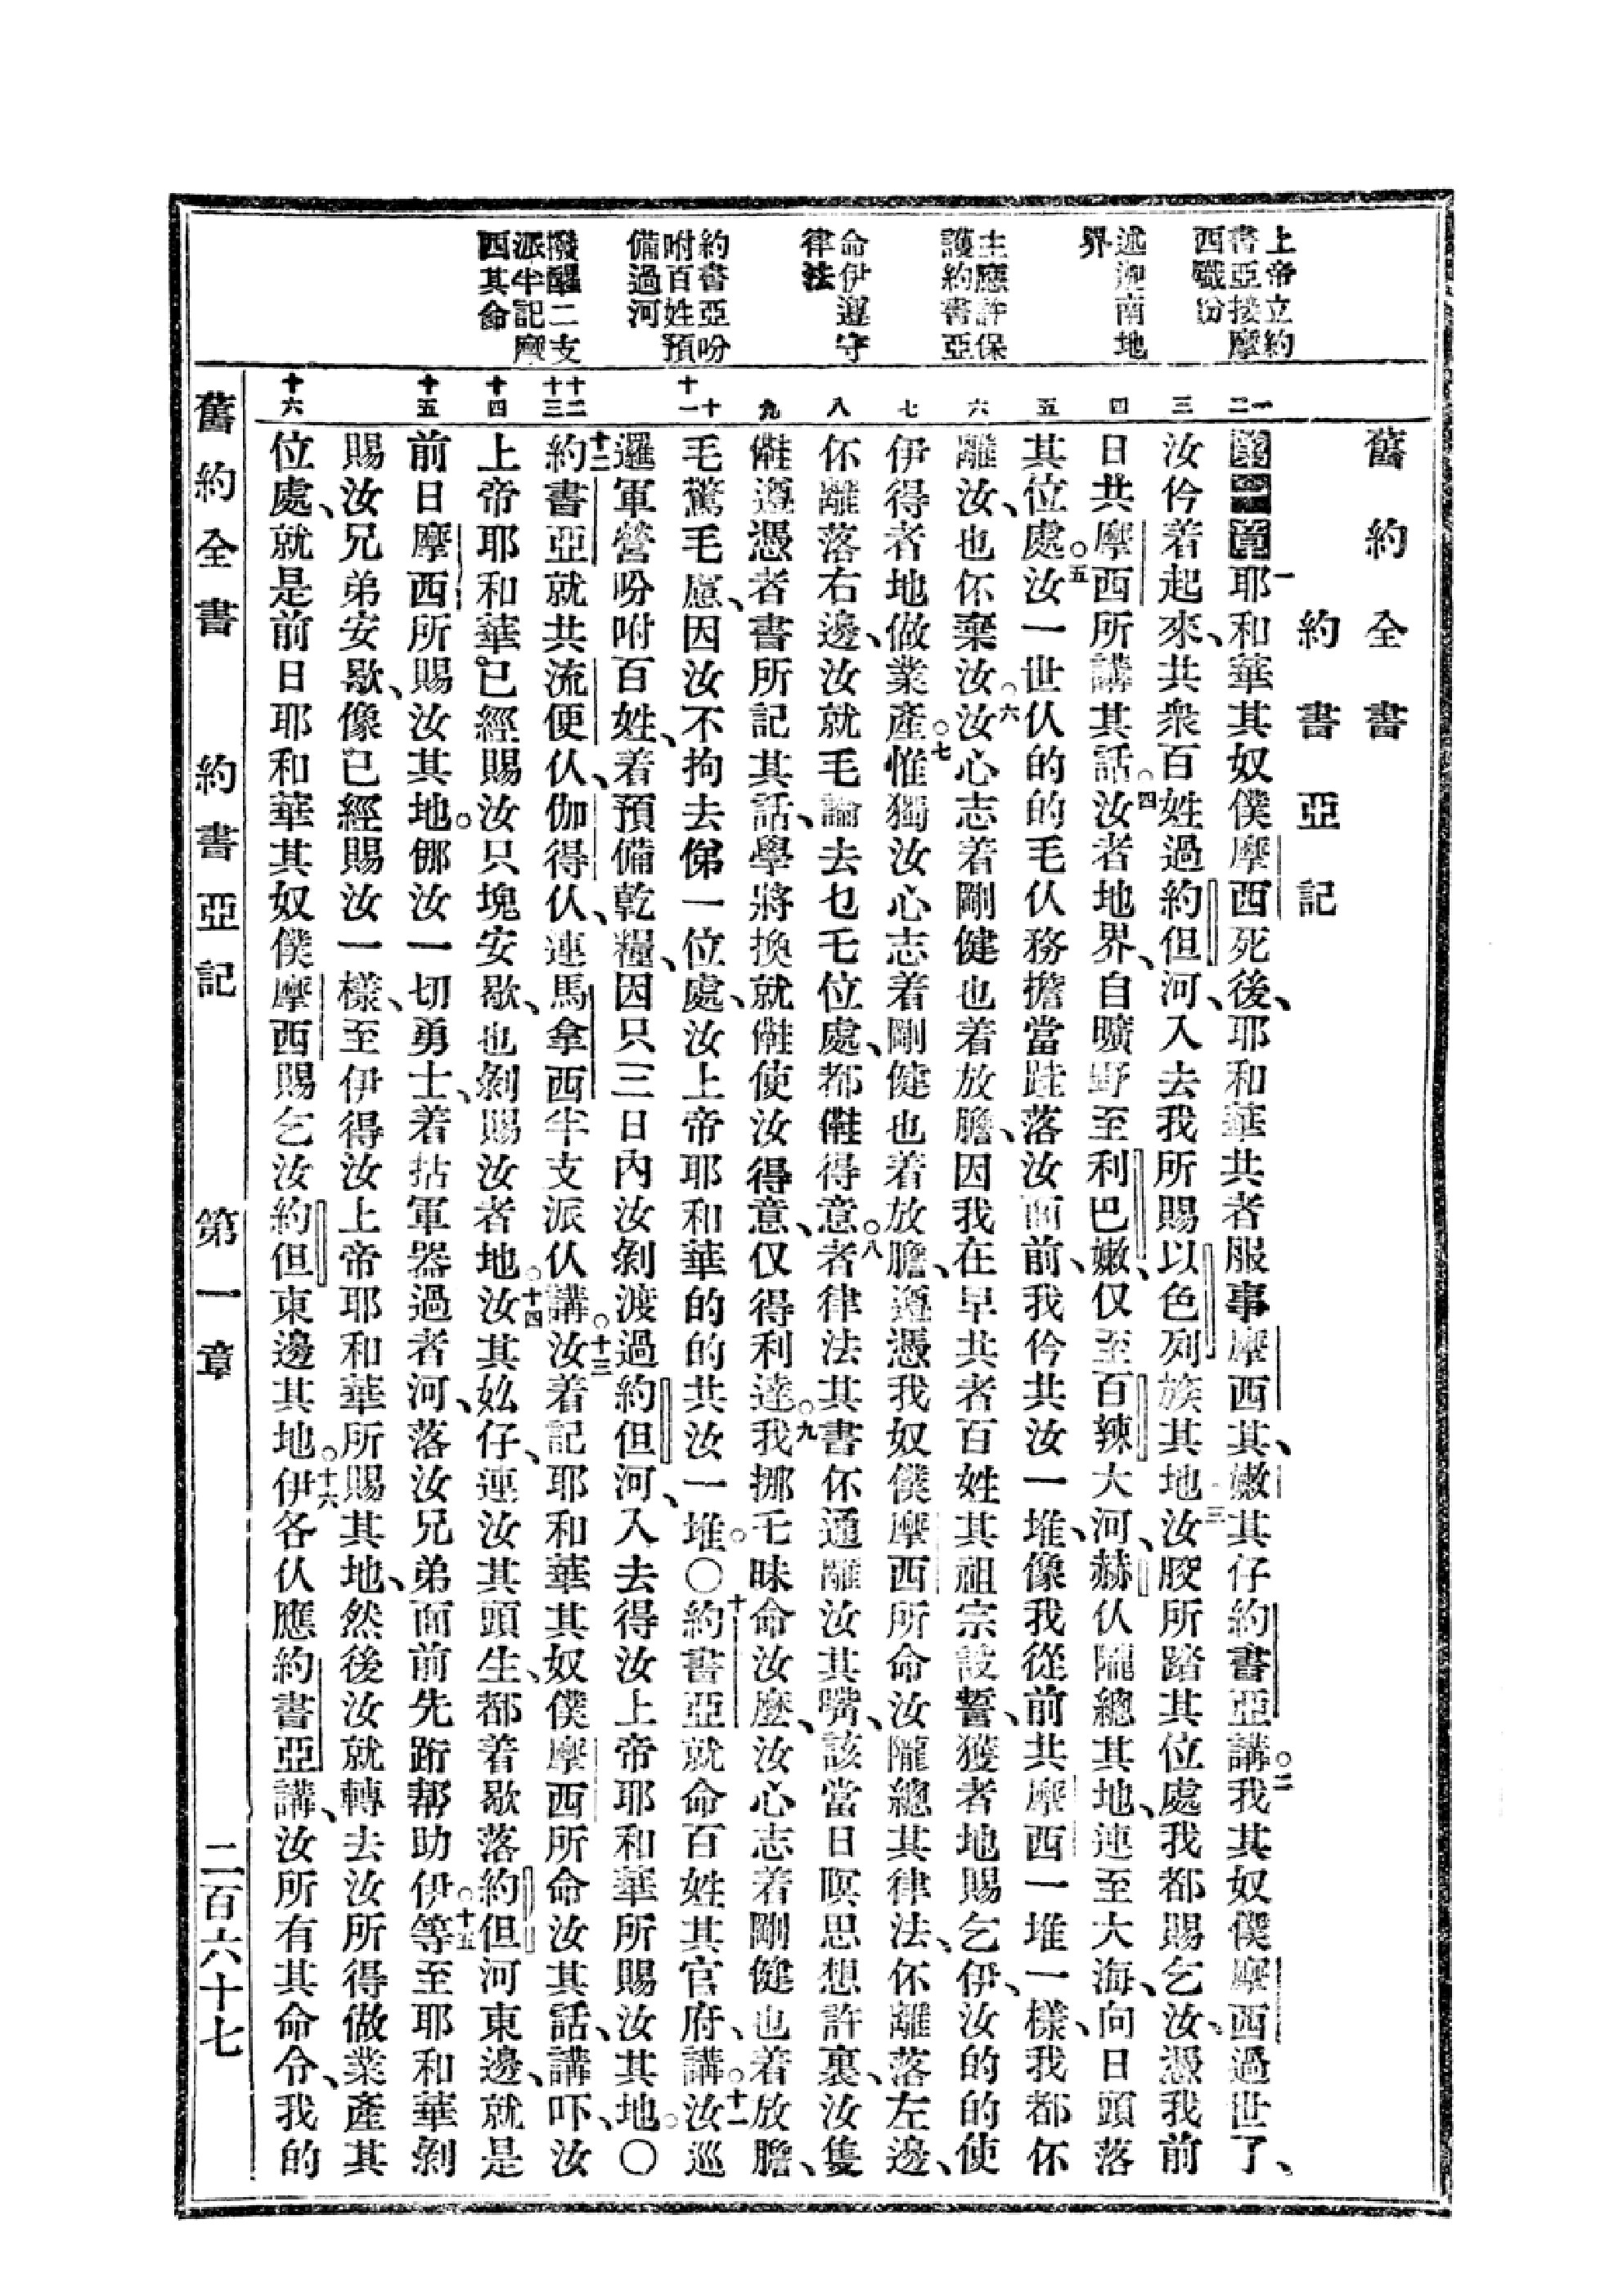 上帝立約
書亞接摩
西職份
述迦南地
界
主應許保
護約書亞
命伊遵守
律法
約書亞吩
咐百姓預
備過河
撥醒二支
派半記摩
西其命
一
二
三
四
五
六
七
八
九
十
十一
十二
十三
十四
十五
十六
舊約全書
約書亞記
第一章一耶和華其奴僕摩西死後、耶和華共者服事摩西其、嫩其仔約書亞講。二我其奴僕摩西過世了、
汝仱着起來、共衆百姓過約但河、入去我所賜以色列族其地。三汝骹所踏其位處、我都賜乞汝、憑我前
日共摩西所講其話。四汝者地界、自曠野至利巴嫩、仅至百辣大河、赫仫隴總其地、連至大海、向日頭落
其位處。五汝一世仫的的毛仫務擔當跬落汝面前、我仱共汝一堆、像我從前共摩西一堆一樣、我都伓
離汝、也伓棄汝。六汝心志着剛健也着放膽、因我在早共者百姓其祖宗設誓、獲者地賜乞伊、汝的的使
伊得者地做業產。七惟獨汝心志着剛健也着放膽、遵憑我奴僕摩西所命汝隴總其律法、伓離落左邊、
伓離落右邊、汝就毛論去乜乇位處、都㑚得意。八者律法其書伓通離汝其嘴、該當日暝思想許裏、汝隻
㑚遵憑者書所記其話、學將換就㑚使汝得意、仅得利達。九我挪乇昧命汝麽、汝心志着剛健也着放膽、
毛驚毛慮、因汝不拘去俤一位處、汝上帝耶和華的的共汝一堆。〇十約書亞就命百姓其官府、講。十一汝巡
邏軍營吩咐百姓、着預備乾糧、因只三日內汝剝渡過約但河、入去得汝上帝耶和華所賜汝其地。〇
十二約書亞就共流便仫、伽得仫、連馬拿西半支派仫講。十三汝着記耶和華其奴僕摩西所命汝其話、講吓、汝
上帝耶和華已經賜汝只塊安歇、也剝賜汝者地。十四汝其妐仔、連汝其頭生、都着歇落約但河東邊、就是
前日摩西所賜汝其地。倻汝一切勇士、着拈軍器過者河、落汝兄弟面前先跀帮助伊等。十五至耶和華剝
賜汝兄弟安歇、像已經賜汝一樣、至伊得汝上帝耶和華所賜其地、然後汝就轉去汝所得做業產其
位處、就是前日耶和華其奴僕摩西賜乞汝約但東邊其地。十六伊各仫應約書亞講、汝所有其命令、我的
舊約全書 約書亞記 第一章 二百六十七